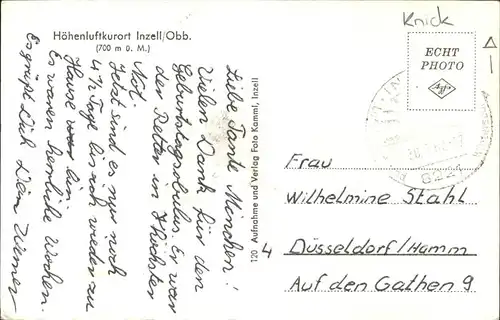 Höhenluftkurort Inzell/Obb.
(700 m ü. M.)
Knick
ECHT
PHOTO
Liebe Tante Minchen!
Vielen Dank für den
Geburtstagsobulus. Er war
der Retter in höchster
Not.
Jetzt sind es nur noch
4 ½ Tage bis ich wieder zu
Hause bin.
Es waren herrliche Wochen.
Es grüßt Dich Dein Wiener
120 Aufnahme und Verlag Foto Kamml, Inzell
8221
Frau
Wilhelmine Stahl
4 Düsseldorf/Hamm
Auf den Gathen 9